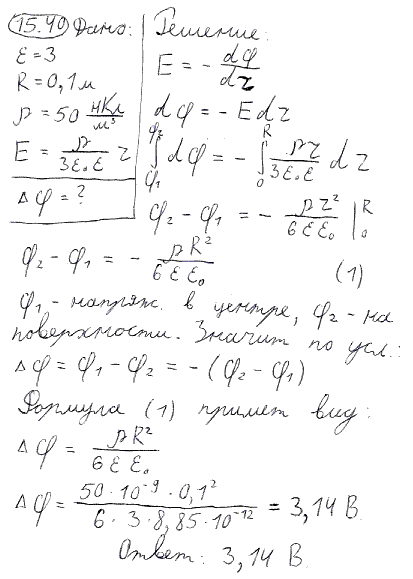 15.40 Дано:
ε = 3
R = 0,1 м
ρ = 50 нКл/м³
E = ρ/3ε₀ε r
Δφ = ?
Решение:
E = - dφ/dr
dφ = - E dr
∫_φ₁^φ₂ dφ = - ∫_0^R ρr/3ε₀ε dr
φ₂ - φ₁ = - ρr²/6εε₀ |_0^R
φ₂ - φ₁ = - ρR²/6εε₀ (1)
φ₁ - напряж. в центре, φ₂ - на
поверхности. Значит по усл.:
Δφ = φ₁ - φ₂ = - (φ₂ - φ₁)
Формула (1) примет вид:
Δφ = ρR²/6εε₀
Δφ = 50·10⁻⁹·0,1²/6·3·8,85·10⁻¹² = 3,14 В
Ответ: 3,14 В.